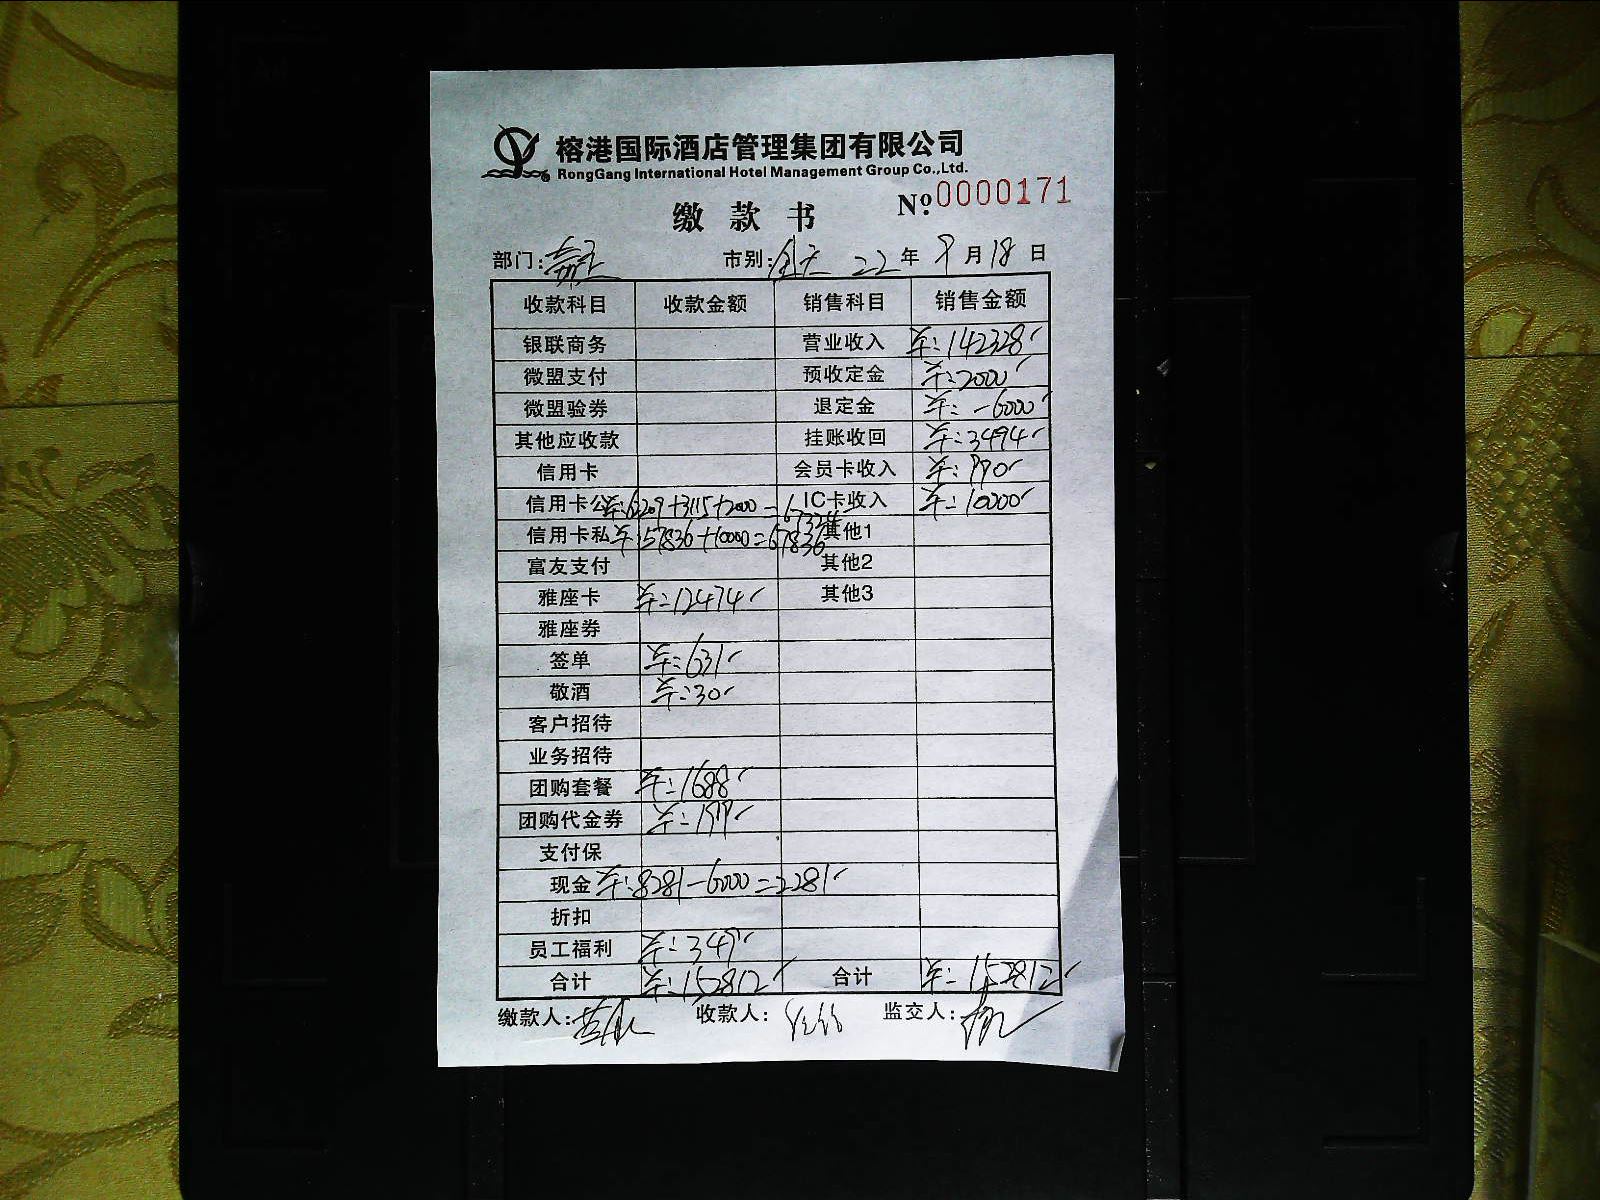 榕港国际酒店管理集团有限公司
RongGang International Hotel Management Group Co.,Ltd.
缴款书 Nº.0000171
部门: 市别:全天 22年9月18日
收款科目 收款金额 销售科目 销售金额
银联商务 营业收入 ¥:142328
微盟支付 预收定金 ¥:2000
微盟验券 退定金 ¥:-6000
其他应收款 挂账收回 ¥:3494
信用卡 会员卡收入 ¥:990
信用卡公 ¥:62209+3115+2000=67324 IC卡收入 ¥:10000
信用卡私 ¥:57836+10000=67836 其他1
富友支付 其他2
雅座卡 ¥:12474 其他3
雅座券
签单 ¥:631
敬酒 ¥:30
客户招待
业务招待
团购套餐 ¥:1688
团购代金券 ¥:199
支付保
现金 ¥:8281-6000=2281
折扣
员工福利 ¥:349
合计 ¥:152812 合计 ¥:152812
缴款人: 收款人: 监交人: